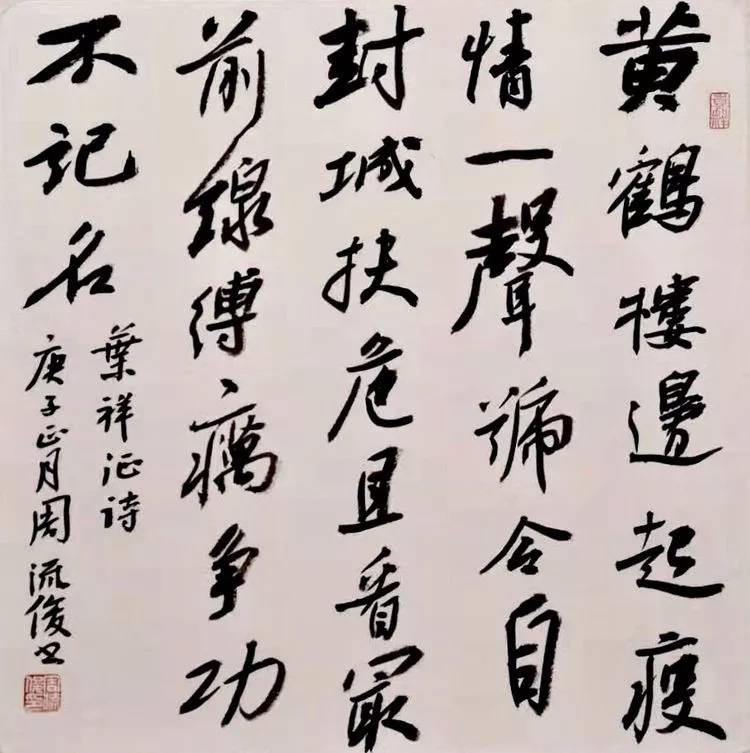 黄鶴樓邊起疫
情一聲號令自
封城扶危且看最
前線縛癘争功
不記名
葉祥詩
庚子正月周流俊书